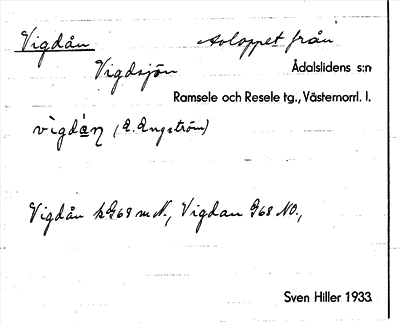 Vigdån avloppet från
Vigdsjön Ådalslidens s:n
Ramsele och Resele tg., Västernorrl. l.
vìgdán (E. Engström)
Vigdån kG68 mN., Vigdan G68 NO.,
Sven Hiller 1933